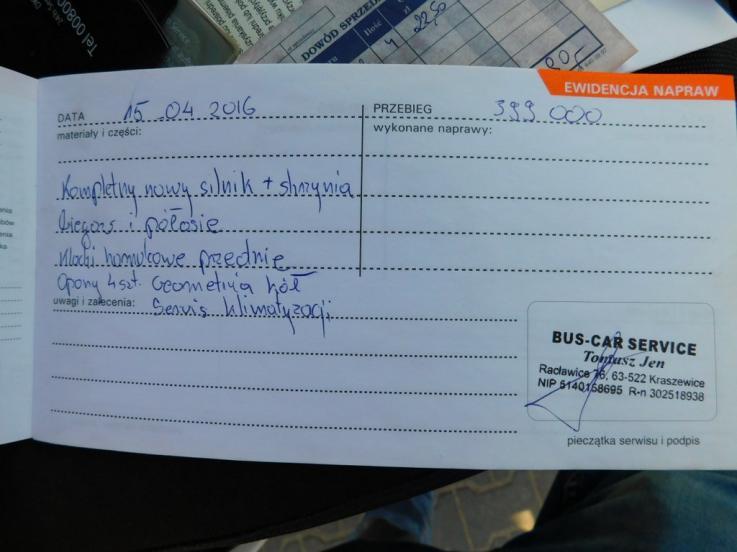 Tel 00800
DOWÓD SPRZED
Ilość
4
22,50
EWIDENCJA NAPRAW
DATA 15.04 2016
PRZEBIEG 399 000
materiały i części:
wykonane naprawy:
Kompletny nowy silnik + skrzynia
biegów i półosie
Klocki hamulcowe przednie
Opony 4 szt. Geometria kół
uwagi i zalecenia: Serwis klimatyzacji
BUS-CAR SERVICE
Tomasz Jen
Racławice 16, 63-522 Kraszewice
NIP 5140158695 R-n 302518938
pieczątka serwisu i podpis